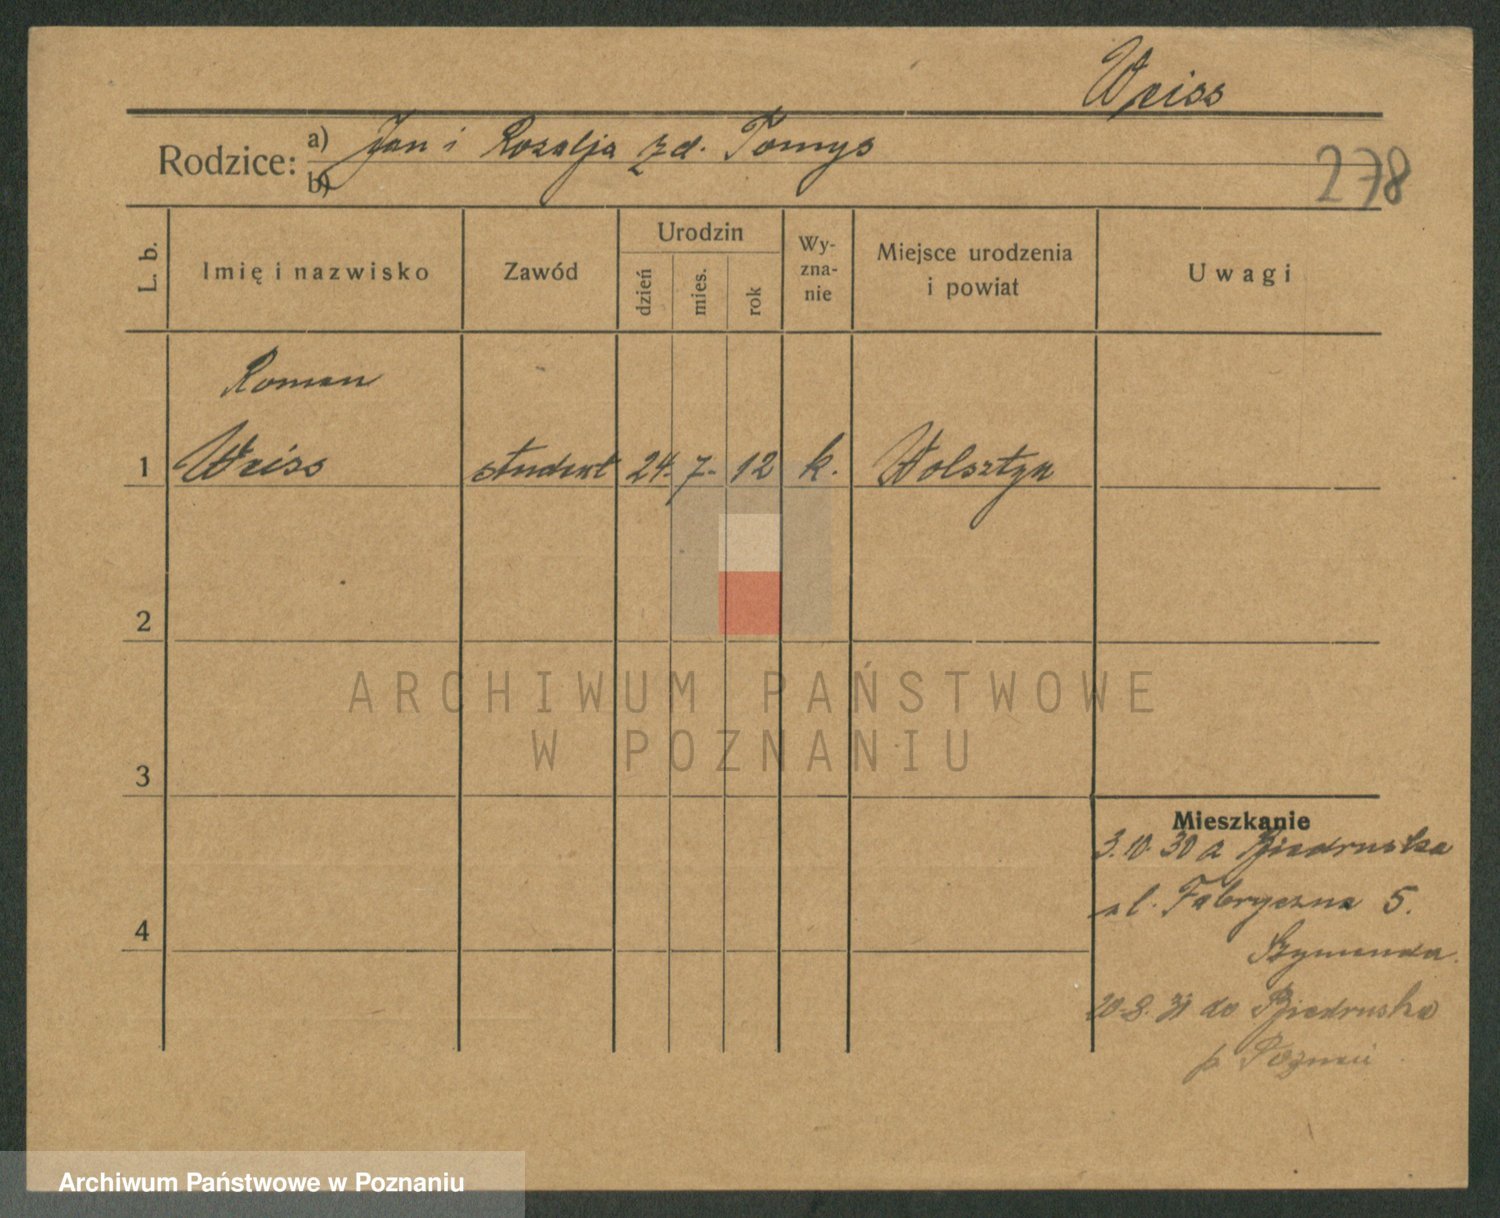 Weiss
Rodzice: a) Jan i Rozalja zd. Tomys
b)
278
L. b.
Imię i nazwisko
Zawód
Urodzin
dzień
mies.
rok
Wy-
zna-
nie
Miejsce urodzenia
i powiat
Uwagi
Roman
1 Weiss student 24. 7. 12 k. Wolsztyn
2
ARCHIWUM PAŃSTWOWE
W POZNANIU
3
Mieszkanie
3.10.30 a Biedruska
ul. Fabryczna 5.
4
Szymanda.
20.8.31 do Biedruska
p. Poznań
Archiwum Państwowe w Poznaniu